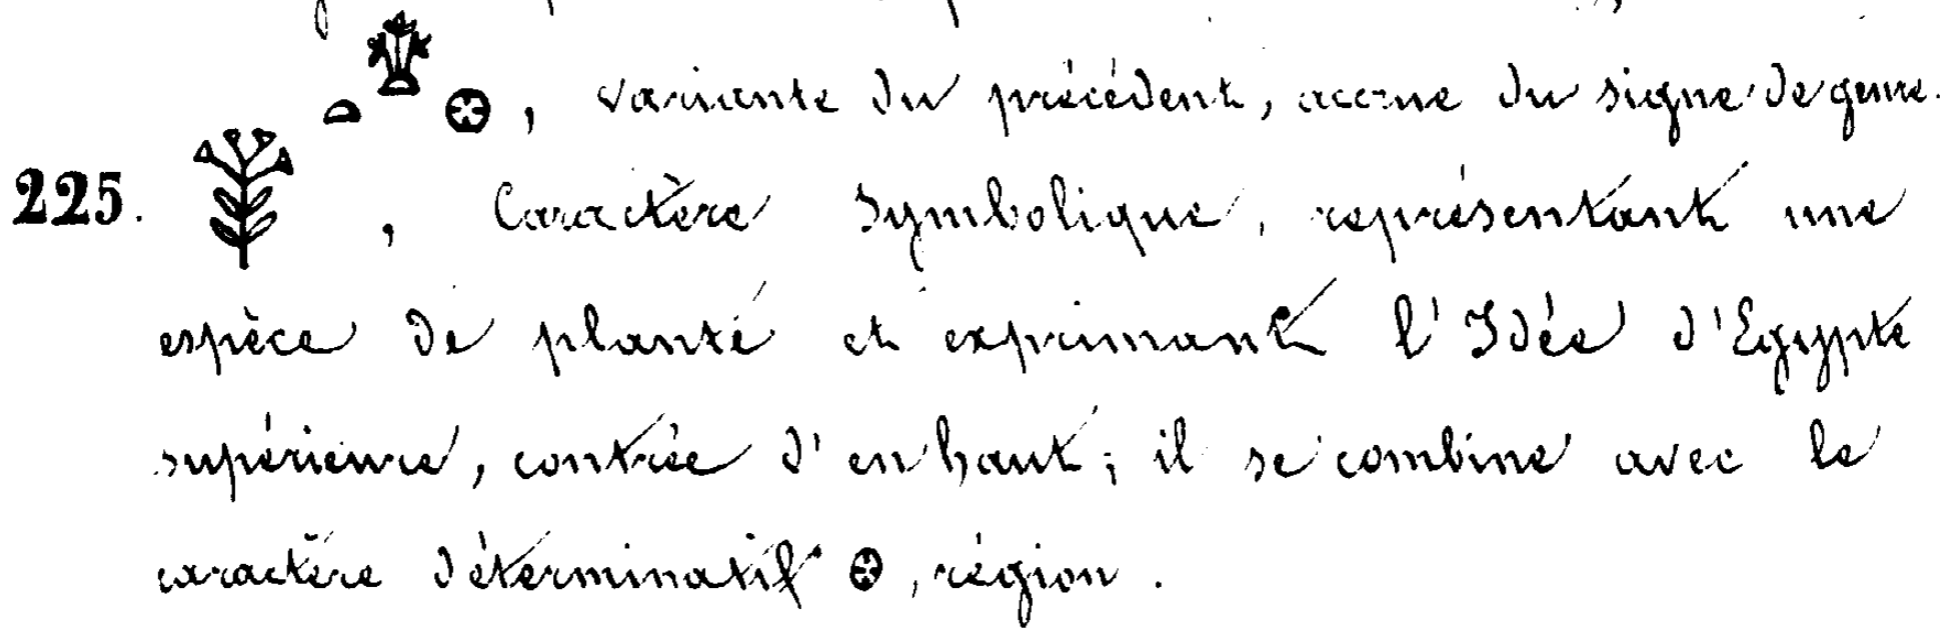 𓏏 𓇇 𓊖, variante du précédent, accrue du signe de genre.
225. , Caractère Symbolique, représentant une
espèce de plante et exprimant l'Idée d'Egypte
supérieure, contrée d'enhaut; il se combine avec le
caractère déterminatif 𓊖, région.